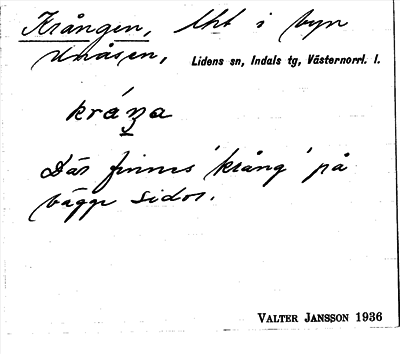 Krången, lht i byn
Unåsen, Lidens sn, Indals tg, Västernorrl. l.
kráŋa
Där finnes 'krång' på
bägge sidor.
VALTER JANSSON 1936